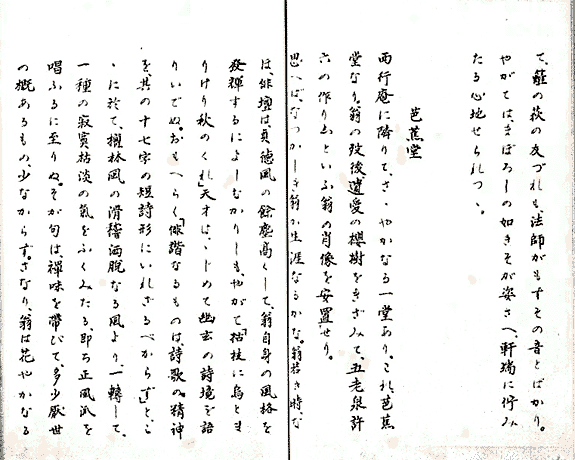 て、籬の萩の友づれも、法師がもすその音とばかり。
やがては、まぼろしの如きそが姿さへ、軒端に佇み
たる心地せられつゝ。
芭蕉堂
西行庵に隣りて、さゝやかなる一堂あり。これ芭蕉
堂なり。翁の歿後遺愛の櫻樹をきざみて、五老泉許
六の作りしといふ翁の肖像を安置せり。
思へば、なつかしき翁が生涯なるかな。翁若き時な
は、俳壇は貞徳風の餘塵高くして、翁自身の風格を
發揮するによしなかりしも、やがて「枯枝に烏とま
りけり秋のくれ」天才は、はじめて幽玄の詩境を語
りいでぬ。おもへらく「俳諧なるものは、詩歌の精神
を、其の十七字の短詩形にいれざるべからず」と、こ
ゝに於て、檀林風の滑稽洒脱なる風より、一轉して、
一種の寂寞枯淡の氣をふくみたる、即ち正風派を
唱ふるに至りぬ。そが句は禪味を帶びて、多少厭世
の概あるもの、少なからず。さなり、翁は花やかなる